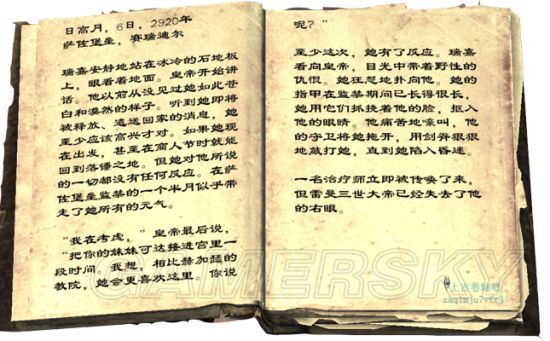 日高月，6日，2920年
萨佐堡垒，赛瑞迪尔
瑞嘉安静地站在冰冷的石地板
上，眼看着地面。皇帝开始讲
话。他以前从没见过她如此苍
白和漠然的样子。听到她即将
被释放、遣送回家的消息，她
至少应该高兴才对。如果她现
在出发，甚至在商人节时就能
回到落锤之地。但她对他所说
的一切都没有任何反应。在萨
佐堡垒监禁的一个半月似乎带
走了她所有的元气。
“我在考虑，”皇帝最后说，
“把你的妹妹可达接进宫里一
段时间。我想，相比赫加隘的
教院，她会更喜欢这里。你说
呢？”
至少这次，她有了反应。瑞嘉
看向皇帝，目光中带着野性的
仇恨。她狂怒地扑向他。她的
指甲在监禁期间已长得很长，
她用它们抓挠着他的脸，抠入
他的眼睛。他痛苦地嚎叫，他
的守卫将她拖开，用剑脊狠狠
地敲打她，直到她陷入昏迷。
一名治疗师立即被传唤了来，
但雷曼三世大帝已经失去了他
的右眼。
GAMERSKY
上古卷轴吧